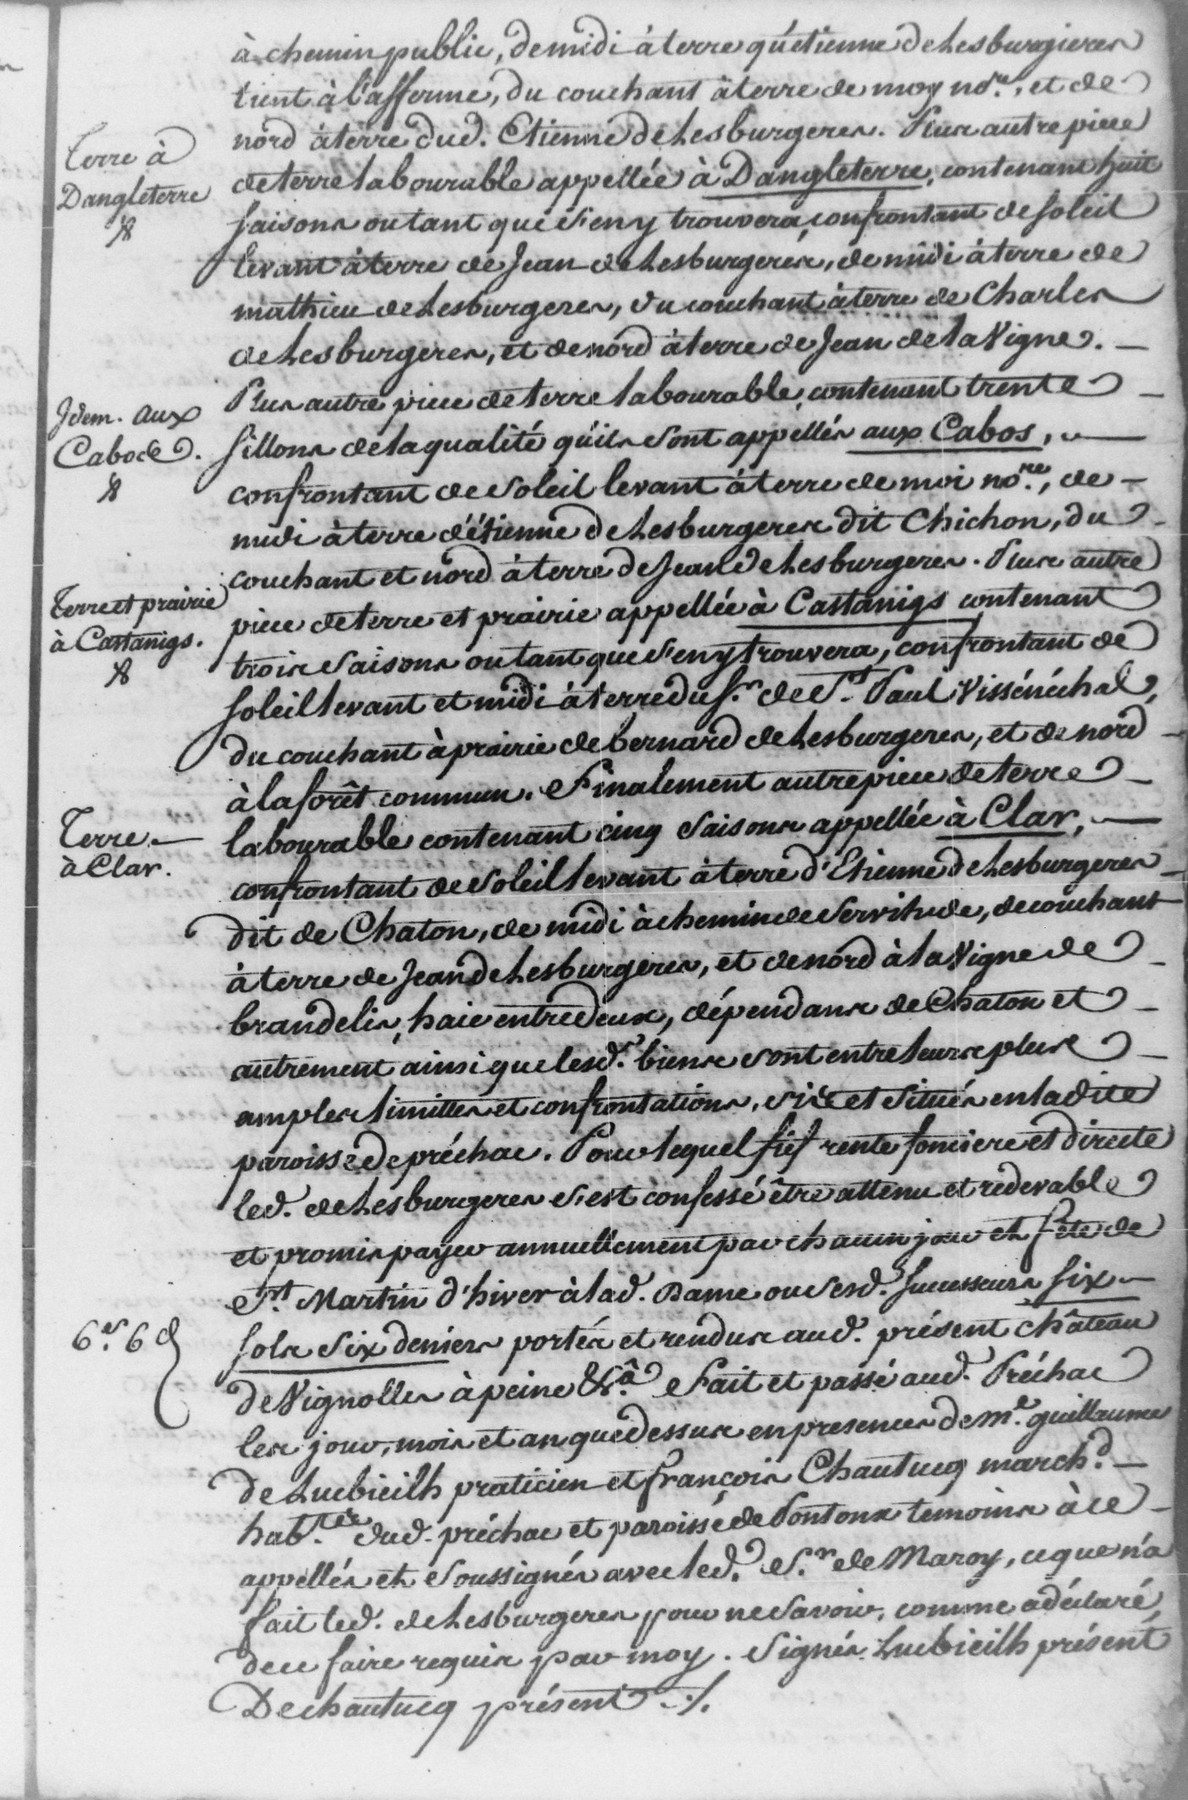 à chemin public, de midi à terre qu'etienne de Lesburgieres
tient à l'afferme, du couchant à terre de moy no.re, et de
nord à terre dud. Etienne de Lesburgeres. Plus autre piece
Terre à
Dangleterre
de terre labourable appellée à Dangleterre, contenant huit
saisons ou tant que s'en y trouvera, confrontant de soleil
levant à terre de Jean de Lesburgeres, de midi à terre de
mathieu de Lesburgeres, du couchant à terre de Charles
de Lesburgeres, et de nord à terre de Jean de la Vigne. —
Idem. aux
Cabods.
Plus autre piece de terre labourable, contenant trente —
sillons de la qualité qu'ils sont appellés aux Cabos, —
confrontant de soleil levant à terre de moi no.re, de —
midi à terre d'étienne de Lesburgeres dit Chichon, du —
couchant et nord à terre de Jean de Lesburgeres. Plus autre
Terre et prairie
à Castanigs.
piece de terre et prairie appellée à Castanigs contenant
trois saisons ou tant que s'en y trouvera, confrontant de
soleil levant et midi à terre du s.r de S.t Paul Vissénéchal,
du couchant à prairie de bernard de Lesburgeres, et de nord —
à la forêt commun. Finalement autre piece de terre —
Terre —
à Clar.
labourable contenant cinq saisons appellée à Clar, —
confrontant de soleil levant à terre d'Etienne de Lesburgeres —
dit de Chaton, de midi à chemin de servitude, de couchant
à terre de Jean de Lesburgeres, et de nord à la Vigne de —
brandelis, haie entre deux, dépendans de Chaton et —
autrement, ainsi que lesd.s biens sont entre leurs plus —
amples limittes et confrontations, sis et situés en ladite
paroisse de préchac. Pour lequel fief rente fonciere et directe
led. de Lesburgeres s'est confessé être attenu et redevable
et promis payer annuellement par chacun jour et fête de
S.t Martin d'hiver à lad. Dame ou sesd. successeurs six —
6 s. 6 d
sols six deniers portés et rendus aud. présent château
de Vignolles à peine &.a Fait et passé aud. Préchac
les jour, mois et an que dessus en presences de m.e guillaume
de Lucbieilh praticien et françois Chautucq march.d —
hab.tts dud. préchac et paroisse de Pontons temoins à ce —
appellés et soussignés avec led. S.r de Maroy, ce que n'a
fait led. de Lesburgeres pour ne savoir, comme a déclaré,
de ce faire requis par moy. Signés Lucbieilh présent
Dechautucq présent ./.